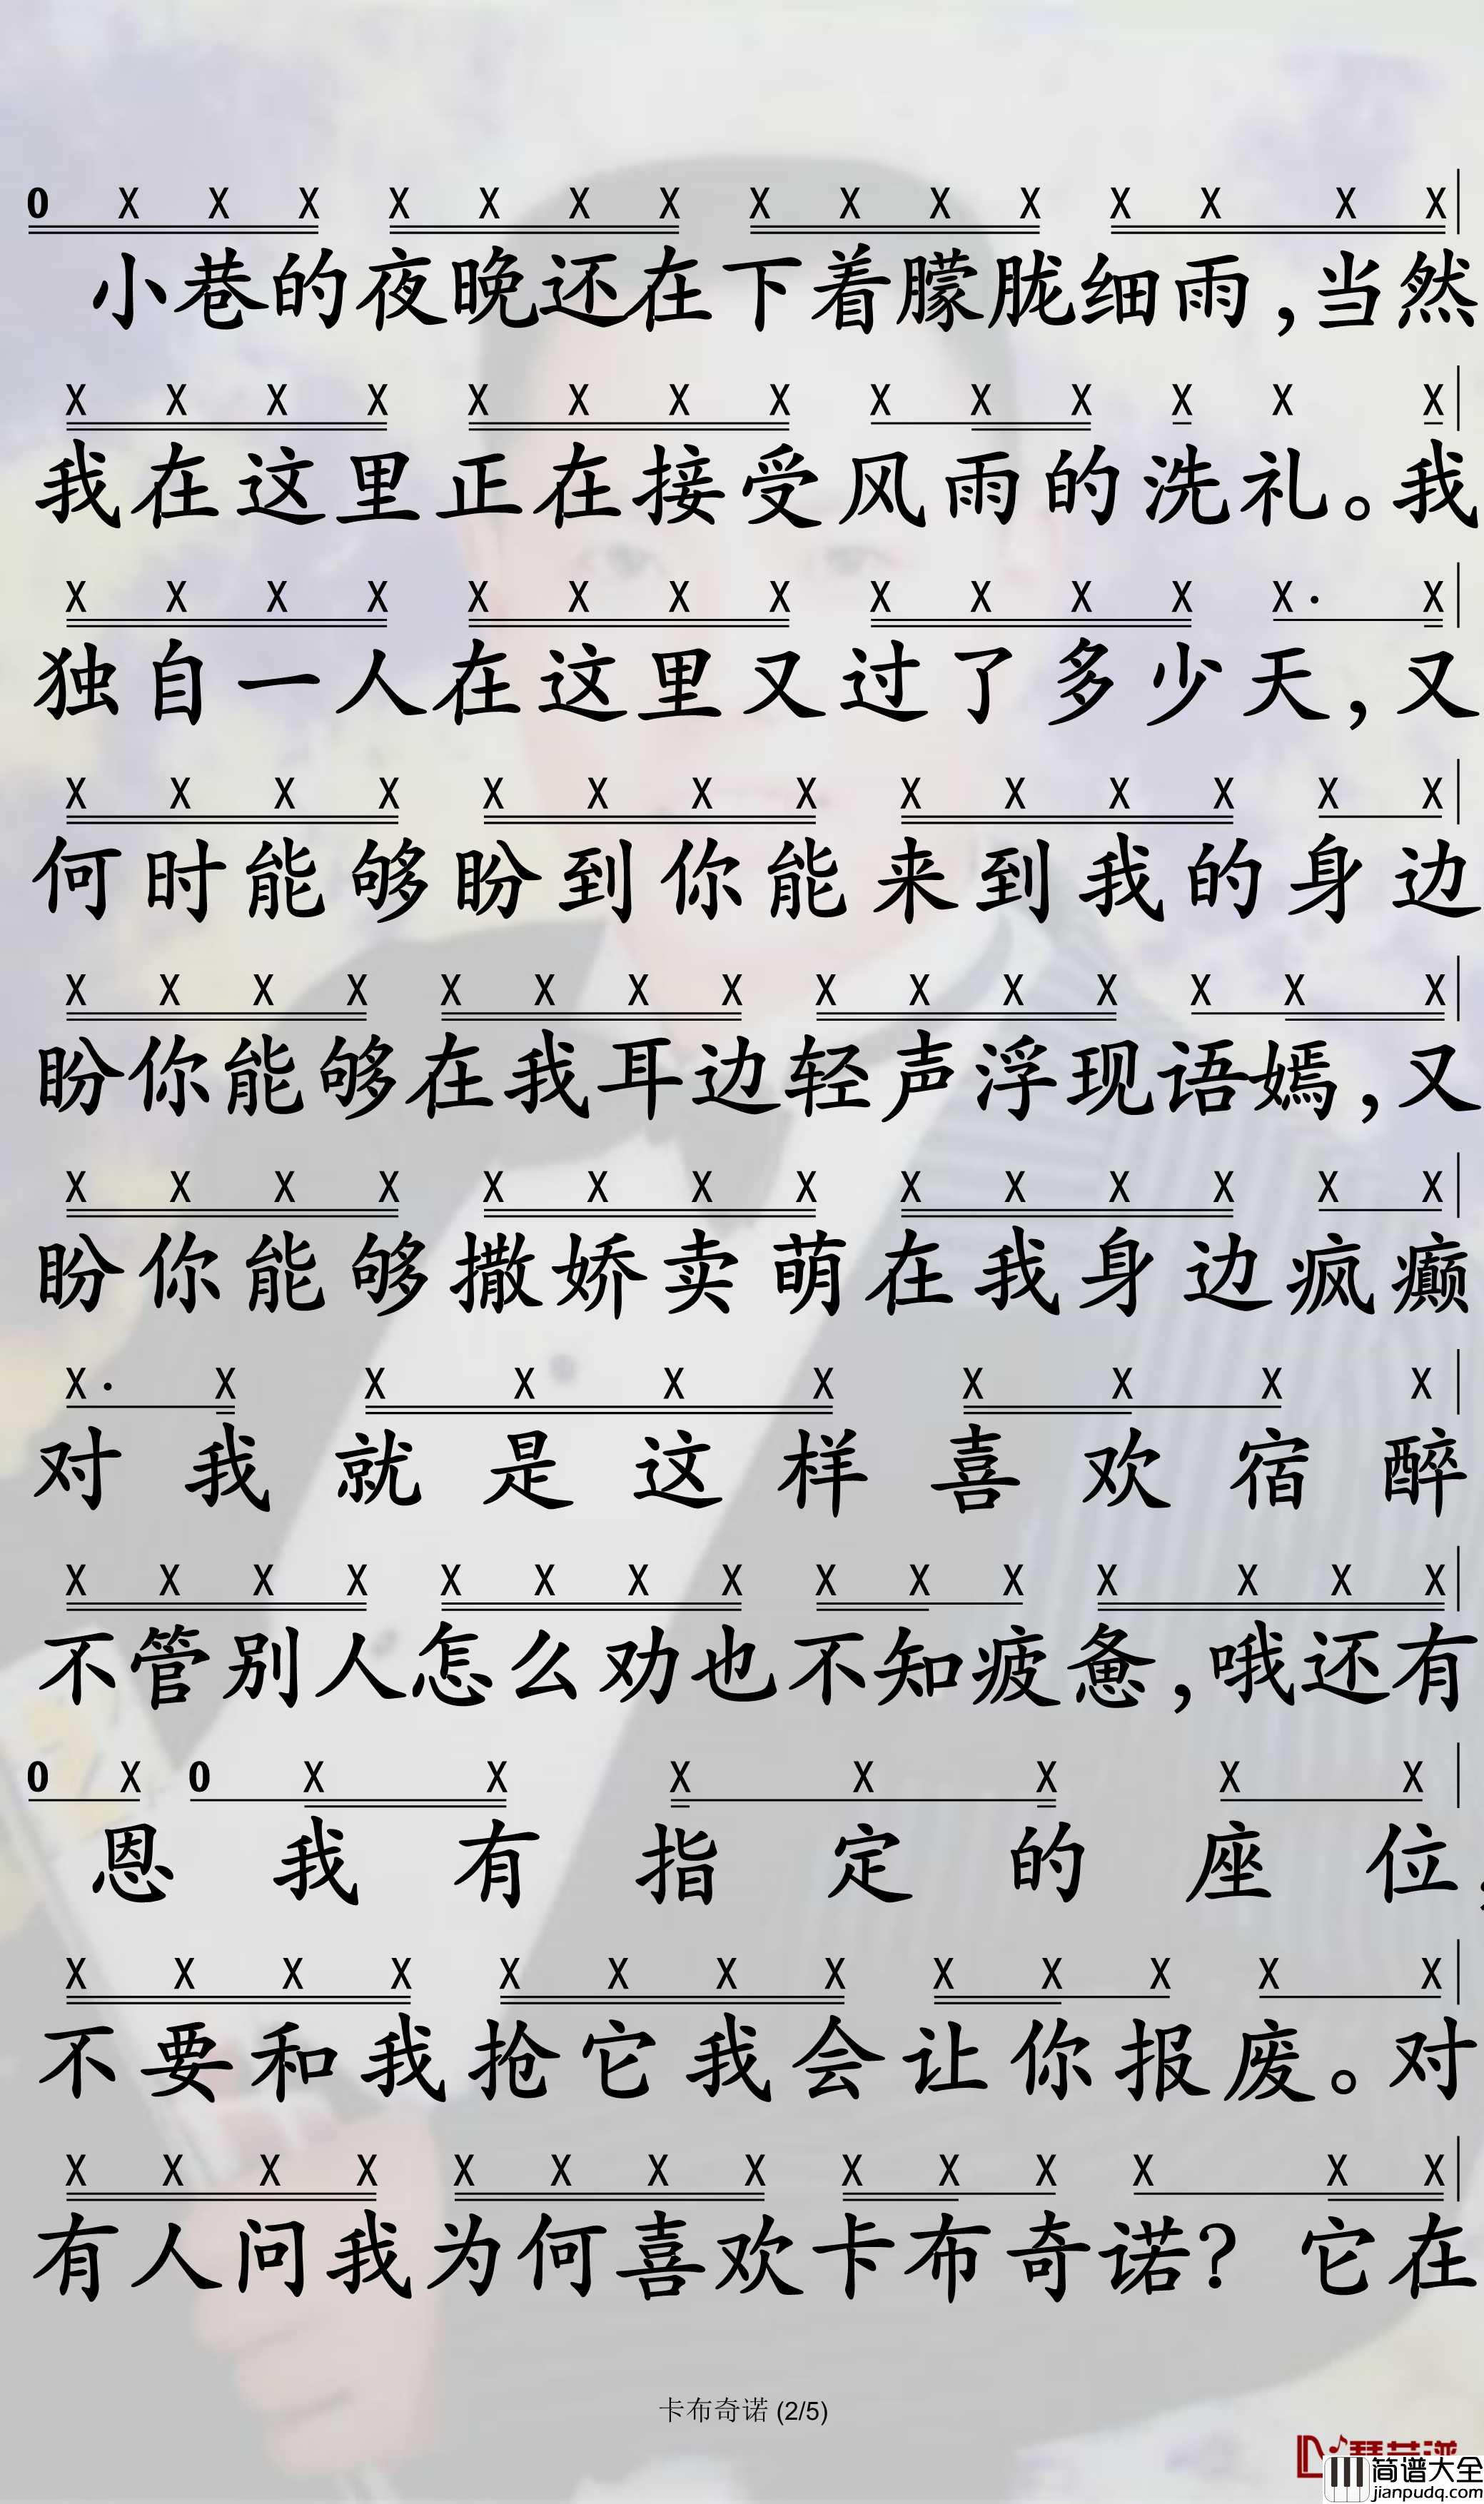 0 X X X X X X X X X X X X X X X
小巷的夜晚还在下着朦胧细雨,当然
X X X X X X X X X X X X X X
我在这里正在接受风雨的洗礼。我
X X X X X X X X X X X X X· X
独自一人在这里又过了多少天,又
X X X X X X X X X X X X X X
何时能够盼到你能来到我的身边
X X X X X X X X X X X X X X X
盼你能够在我耳边轻声浮现语嫣,又
X X X X X X X X X X X X X X
盼你能够撒娇卖萌在我身边疯癫
X· X X X X X X X X X
对我就是这样喜欢宿醉
X X X X X X X X X X X X X X X
不管别人怎么劝也不知疲惫,哦还有
0 X 0 X X X X X X X
恩我有指定的座位,
X X X X X X X X X X X X X
不要和我抢它我会让你报废。对
X X X X X X X X X X X X X X
有人问我为何喜欢卡布奇诺? 它在
卡布奇诺 (2/5)
简谱大全
jianpudq.com